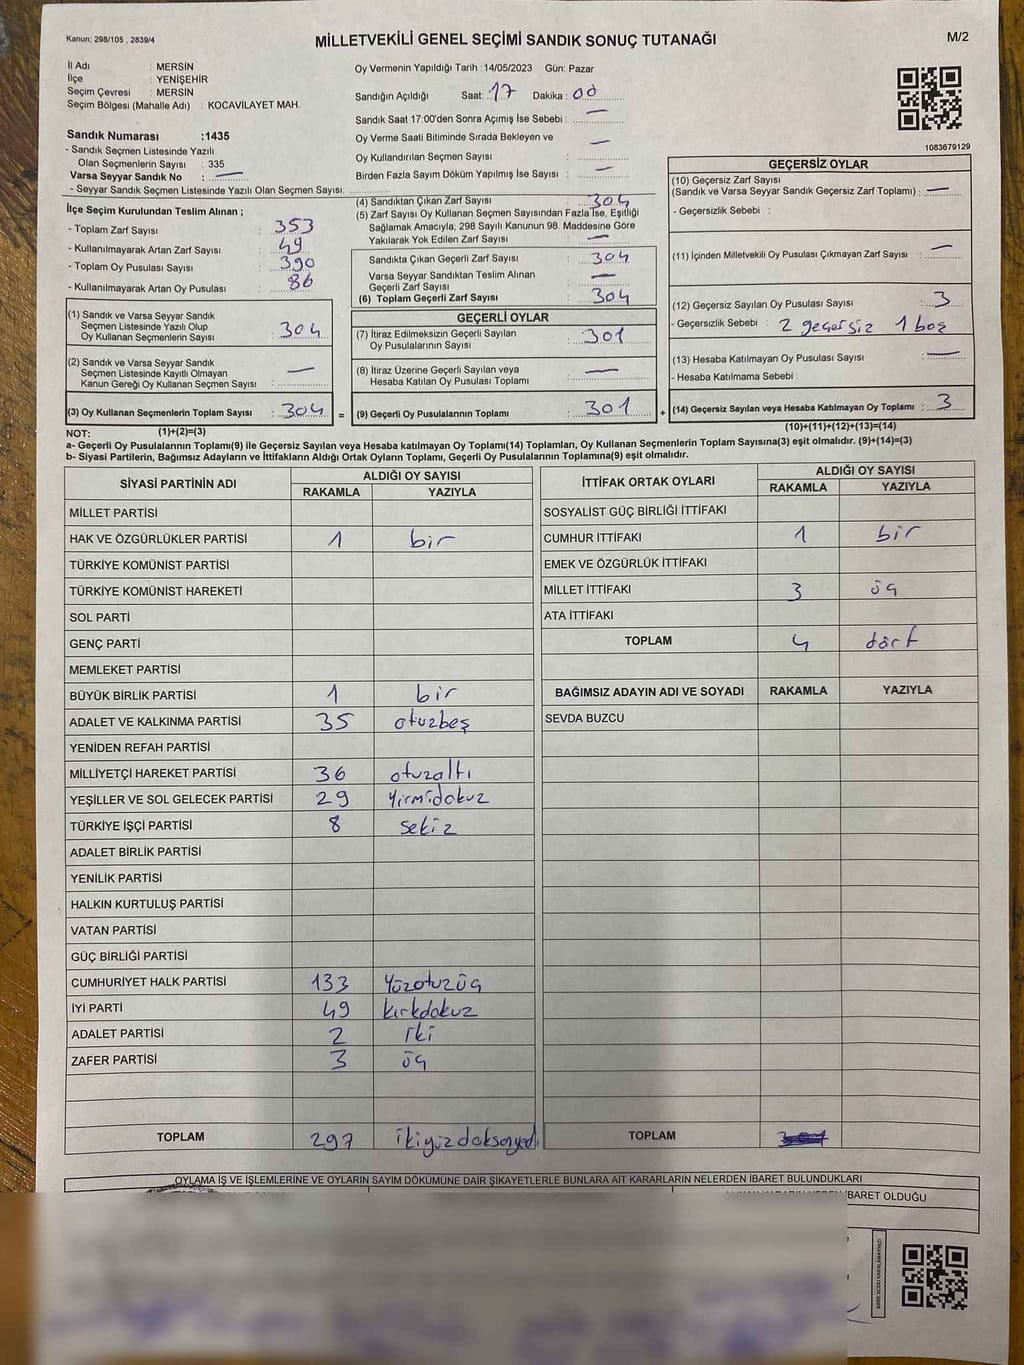 Kanun: 298/105 , 2839/4
MİLLETVEKİLİ GENEL SEÇİMİ SANDIK SONUÇ TUTANAĞI
M/2
İl Adı : MERSİN
İlçe : YENİŞEHİR
Seçim Çevresi : MERSİN
Seçim Bölgesi (Mahalle Adı) : KOCAVİLAYET MAH.
Sandık Numarası :1435
- Sandık Seçmen Listesinde Yazılı
Olan Seçmenlerin Sayısı : 335
Varsa Seyyar Sandık No : —
- Seyyar Sandık Seçmen Listesinde Yazılı Olan Seçmen Sayısı:
Oy Vermenin Yapıldığı Tarih :14/05/2023 Gün: Pazar
Sandığın Açıldığı Saat: 17 Dakika : 00
Sandık Saat 17:00'den Sonra Açımış İse Sebebi : —
Oy Verme Saati Bitiminde Sırada Bekleyen ve
Oy Kullandırılan Seçmen Sayısı : —
Birden Fazla Sayım Döküm Yapılmış İse Sayısı : —
1083679129
İlçe Seçim Kurulundan Teslim Alınan ;
- Toplam Zarf Sayısı : 353
- Kullanılmayarak Artan Zarf Sayısı : 49
- Toplam Oy Pusulası Sayısı : 390
- Kullanılmayarak Artan Oy Pusulası : 86
(1) Sandık ve Varsa Seyyar Sandık
Seçmen Listesinde Yazılı Olup
Oy Kullanan Seçmenlerin Sayısı : 304
(2) Sandık ve Varsa Seyyar Sandık
Seçmen Listesinde Kayıtlı Olmayan
Kanun Gereği Oy Kullanan Seçmen Sayısı : —
(3) Oy Kullanan Seçmenlerin Toplam Sayısı : 304 =
(1)+(2)=(3)
(4) Sandıktan Çıkan Zarf Sayısı : 304
(5) Zarf Sayısı Oy Kullanan Seçmen Sayısından Fazla İse, Eşitliği
Sağlamak Amacıyla; 298 Sayılı Kanunun 98. Maddesine Göre
Yakılarak Yok Edilen Zarf Sayısı : —
Sandıkta Çıkan Geçerli Zarf Sayısı : 304
Varsa Seyyar Sandıktan Teslim Alınan
Geçerli Zarf Sayısı : —
(6) Toplam Geçerli Zarf Sayısı : 304
GEÇERLİ OYLAR
(7) İtiraz Edilmeksizin Geçerli Sayılan
Oy Pusulalarının Sayısı : 301
(8) İtiraz Üzerine Geçerli Sayılan veya
Hesaba Katılan Oy Pusulası Toplamı : —
(9) Geçerli Oy Pusulalarının Toplamı : 301 +
GEÇERSİZ OYLAR
(10) Geçersiz Zarf Sayısı
(Sandık ve Varsa Seyyar Sandık Geçersiz Zarf Toplamı) : —
- Geçersizlik Sebebi :
(11) İçinden Milletvekili Oy Pusulası Çıkmayan Zarf Sayısı : —
(12) Geçersiz Sayılan Oy Pusulası Sayısı : 3
- Geçersizlik Sebebi : 2 geçersiz 1 boş
(13) Hesaba Katılmayan Oy Pusulası Sayısı : —
- Hesaba Katılmama Sebebi :
(14) Geçersiz Sayılan veya Hesaba Katılmayan Oy Toplamı : 3
(10)+(11)+(12)+(13)=(14)
NOT:
a- Geçerli Oy Pusulalarının Toplamı(9) ile Geçersiz Sayılan veya Hesaba katılmayan Oy Toplamı(14) Toplamları, Oy Kullanan Seçmenlerin Toplam Sayısına(3) eşit olmalıdır. (9)+(14)=(3)
b- Siyasi Partilerin, Bağımsız Adayların ve İttifakların Aldığı Ortak Oyların Toplamı, Geçerli Oy Pusulalarının Toplamına(9) eşit olmalıdır.
SİYASİ PARTİNİN ADI ALDIĞI OY SAYISI
RAKAMLA YAZIYLA
MİLLET PARTİSİ
HAK VE ÖZGÜRLÜKLER PARTİSİ 1 bir
TÜRKİYE KOMÜNİST PARTİSİ
TÜRKİYE KOMÜNİST HAREKETİ
SOL PARTİ
GENÇ PARTİ
MEMLEKET PARTİSİ
BÜYÜK BİRLİK PARTİSİ 1 bir
ADALET VE KALKINMA PARTİSİ 35 otuzbeş
YENİDEN REFAH PARTİSİ
MİLLİYETÇİ HAREKET PARTİSİ 36 otuzaltı
YEŞİLLER VE SOL GELECEK PARTİSİ 29 Yirmidokuz
TÜRKİYE İŞÇİ PARTİSİ 8 sekiz
ADALET BİRLİK PARTİSİ
YENİLİK PARTİSİ
HALKIN KURTULUŞ PARTİSİ
VATAN PARTİSİ
GÜÇ BİRLİĞİ PARTİSİ
CUMHURİYET HALK PARTİSİ 133 Yüzotuzüç
İYİ PARTİ 49 kırkdokuz
ADALET PARTİSİ 2 iki
ZAFER PARTİSİ 3 üç
TOPLAM 297 ikiyüzdoksanyedi
İTTİFAK ORTAK OYLARI ALDIĞI OY SAYISI
RAKAMLA YAZIYLA
SOSYALİST GÜÇ BİRLİĞİ İTTİFAKI
CUMHUR İTTİFAKI 1 bir
EMEK VE ÖZGÜRLÜK İTTİFAKI
MİLLET İTTİFAKI 3 üç
ATA İTTİFAKI
TOPLAM 4 dört
BAĞIMSIZ ADAYIN ADI VE SOYADI RAKAMLA YAZIYLA
SEVDA BUZCU
TOPLAM
OYLAMA İŞ VE İŞLEMLERİNE VE OYLARIN SAYIM DÖKÜMÜNE DAİR ŞİKAYETLERLE BUNLARA AİT KARARLARIN NELERDEN İBARET BULUNDUKLARI
İBARET OLDUĞU
KARE KODU KARALAMAYINIZ